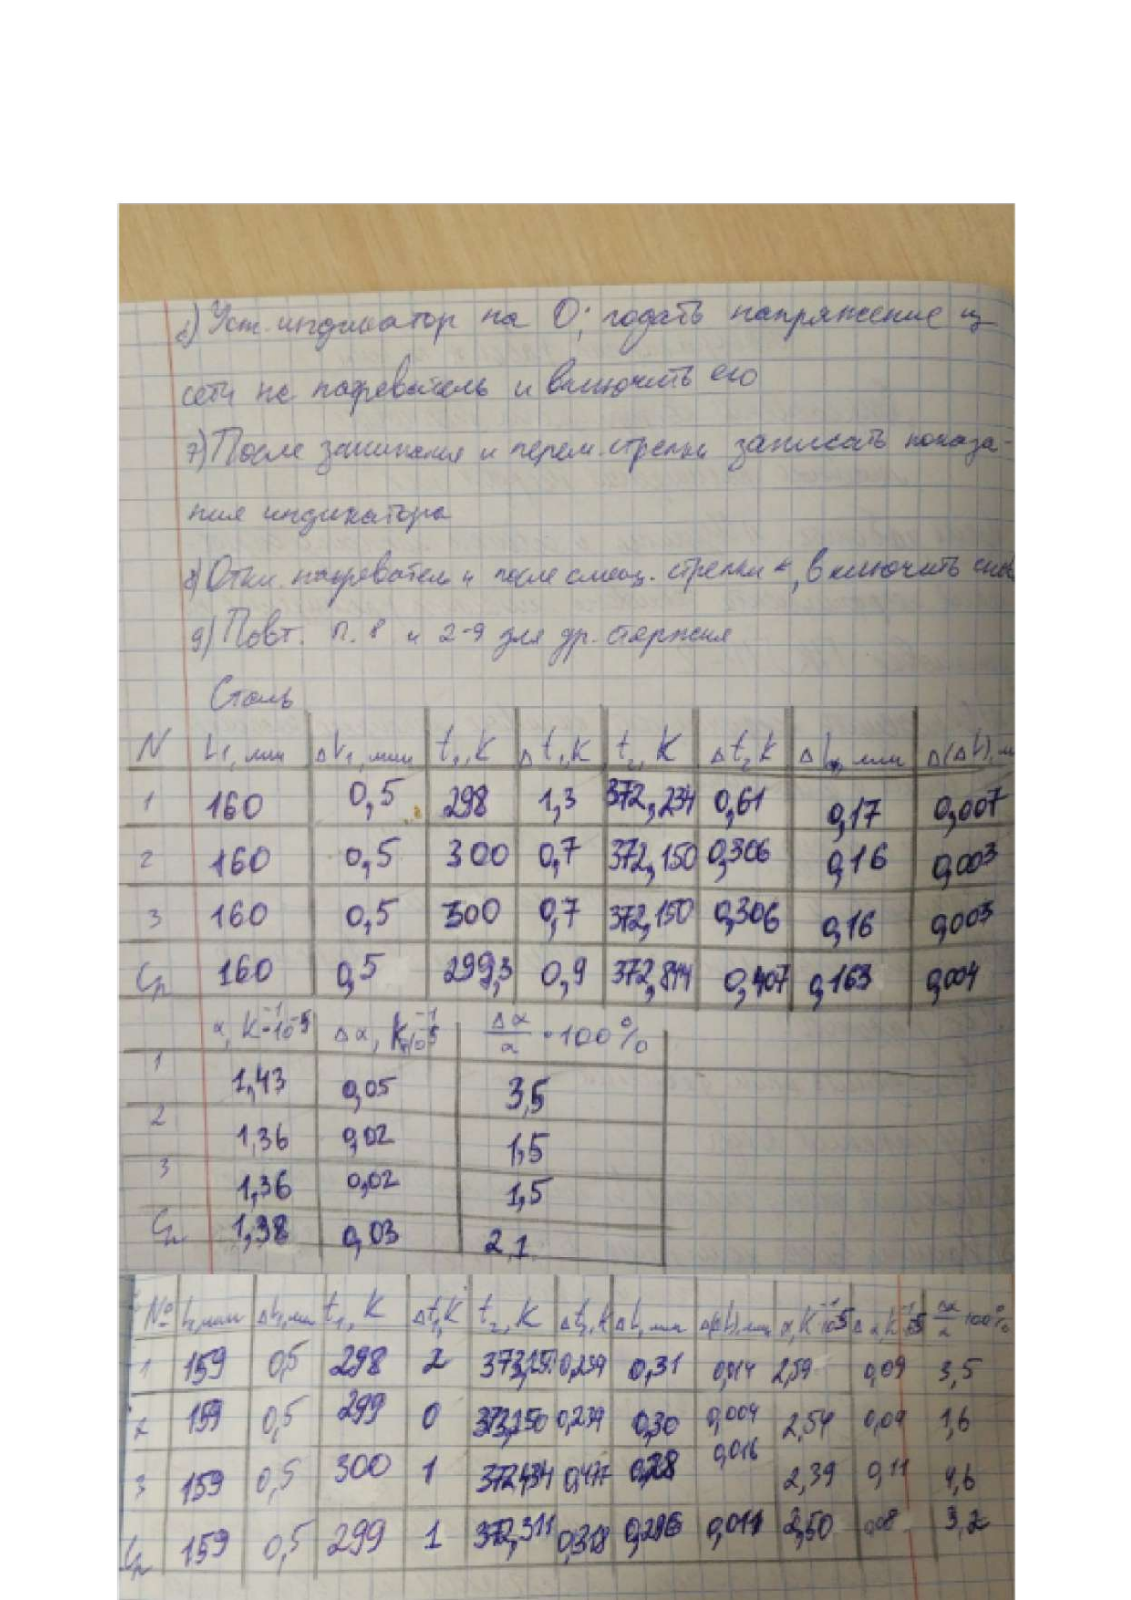 6) Уст. индикатор на 0; подать напряжение из
сети на нагреватель и включить его
7) После закипания и перем. стрелки записать показа-
ния индикатора
8) Откл. нагреватель и после смещ. стрелки к, включить снов
9) Повт. п. 8 и 2-9 для др. стержня
Сталь
N L1, мм ΔL1, мм t1, К Δt1, К t2, К Δt2 К ΔL, мм Δ(ΔL), м
1 160 0,5 298 1,3 372,234 0,61 0,17 0,007
2 160 0,5 300 0,7 372,150 0,306 0,16 0,003
3 160 0,5 300 0,7 372,150 0,306 0,16 0,003
Ср 160 0,5 299,3 0,9 372,844 0,407 0,163 0,004
α, К⁻¹·10⁻⁵ Δα, К⁻¹·10⁻⁵ Δα/α · 100%
1 1,43 0,05 3,5
2 1,36 0,02 1,5
3 1,36 0,02 1,5
Ср 1,38 0,03 2,1
№ L, мм ΔL, мм t1, К Δt1, К t2, К Δt2, К ΔL, мм Δ(ΔL), мм α, К⁻¹·10⁻⁵ Δα, К⁻¹·10⁻⁵ Δα/α 100%
1 159 0,5 298 2 0,239 0,31 0,014 2,59 0,09 3,5
2 159 0,5 299 0 373,150 0,239 0,30 0,004 2,54 0,04 1,6
3 159 0,5 300 1 372,434 0,477 0,28 0,016 2,39 0,11 4,6
Ср 159 0,5 299 1 372,311 0,318 0,296 0,011 2,50 0,08 3,2